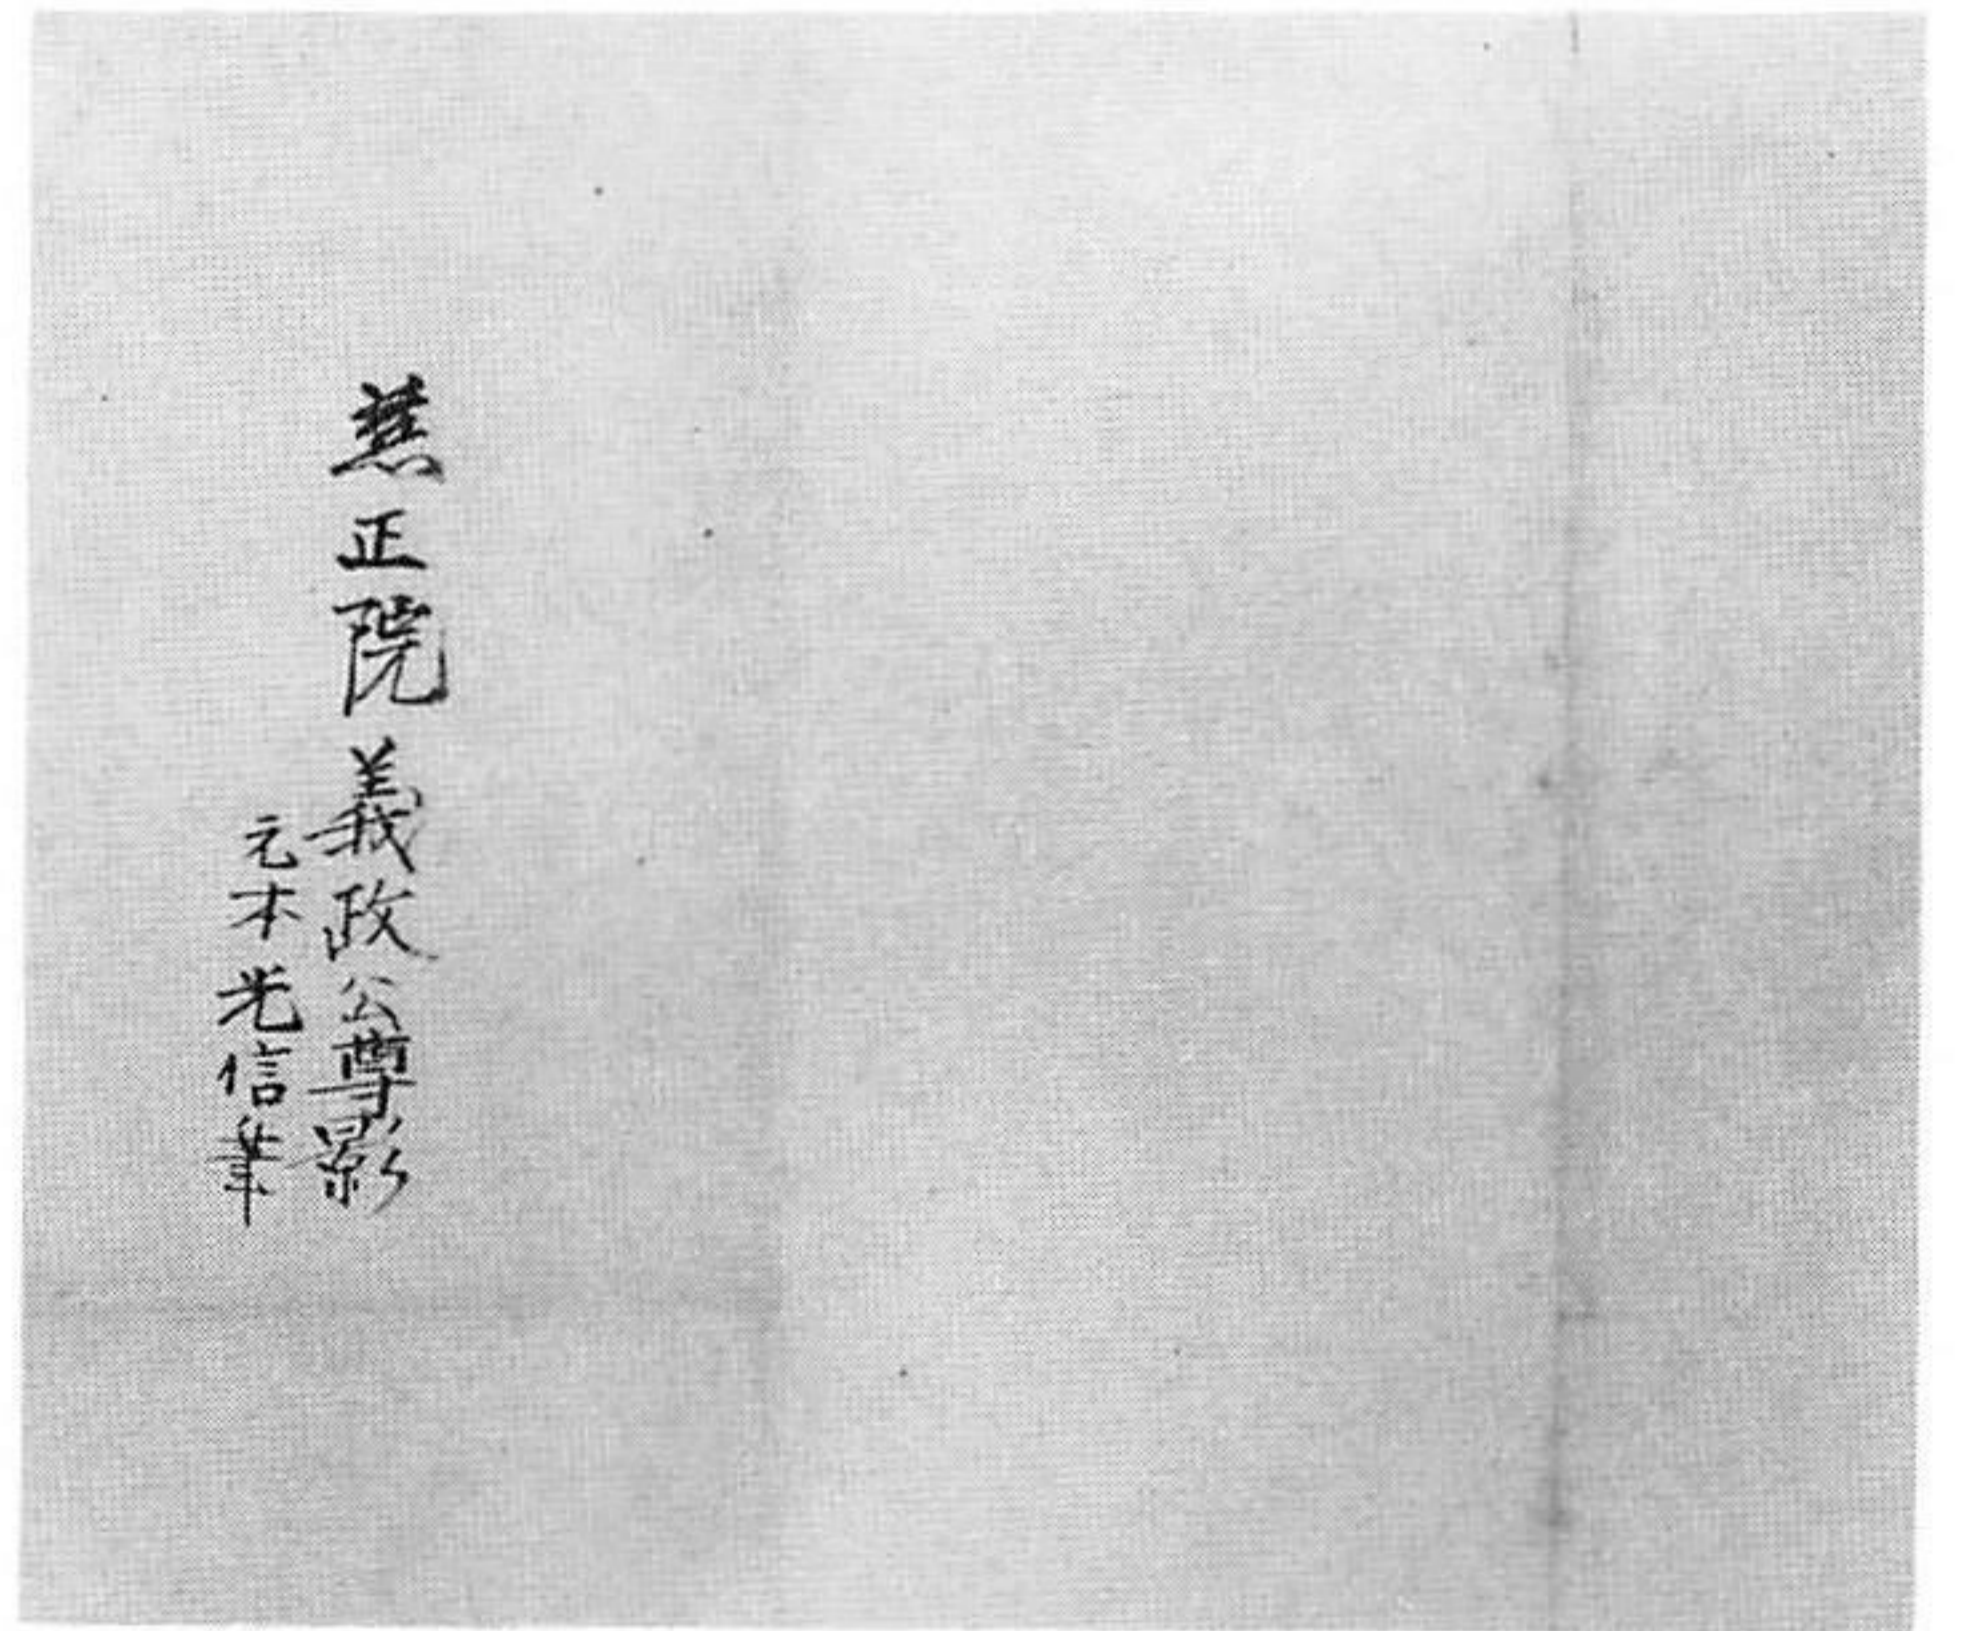 慈正院義政公尊影
元本光信筆